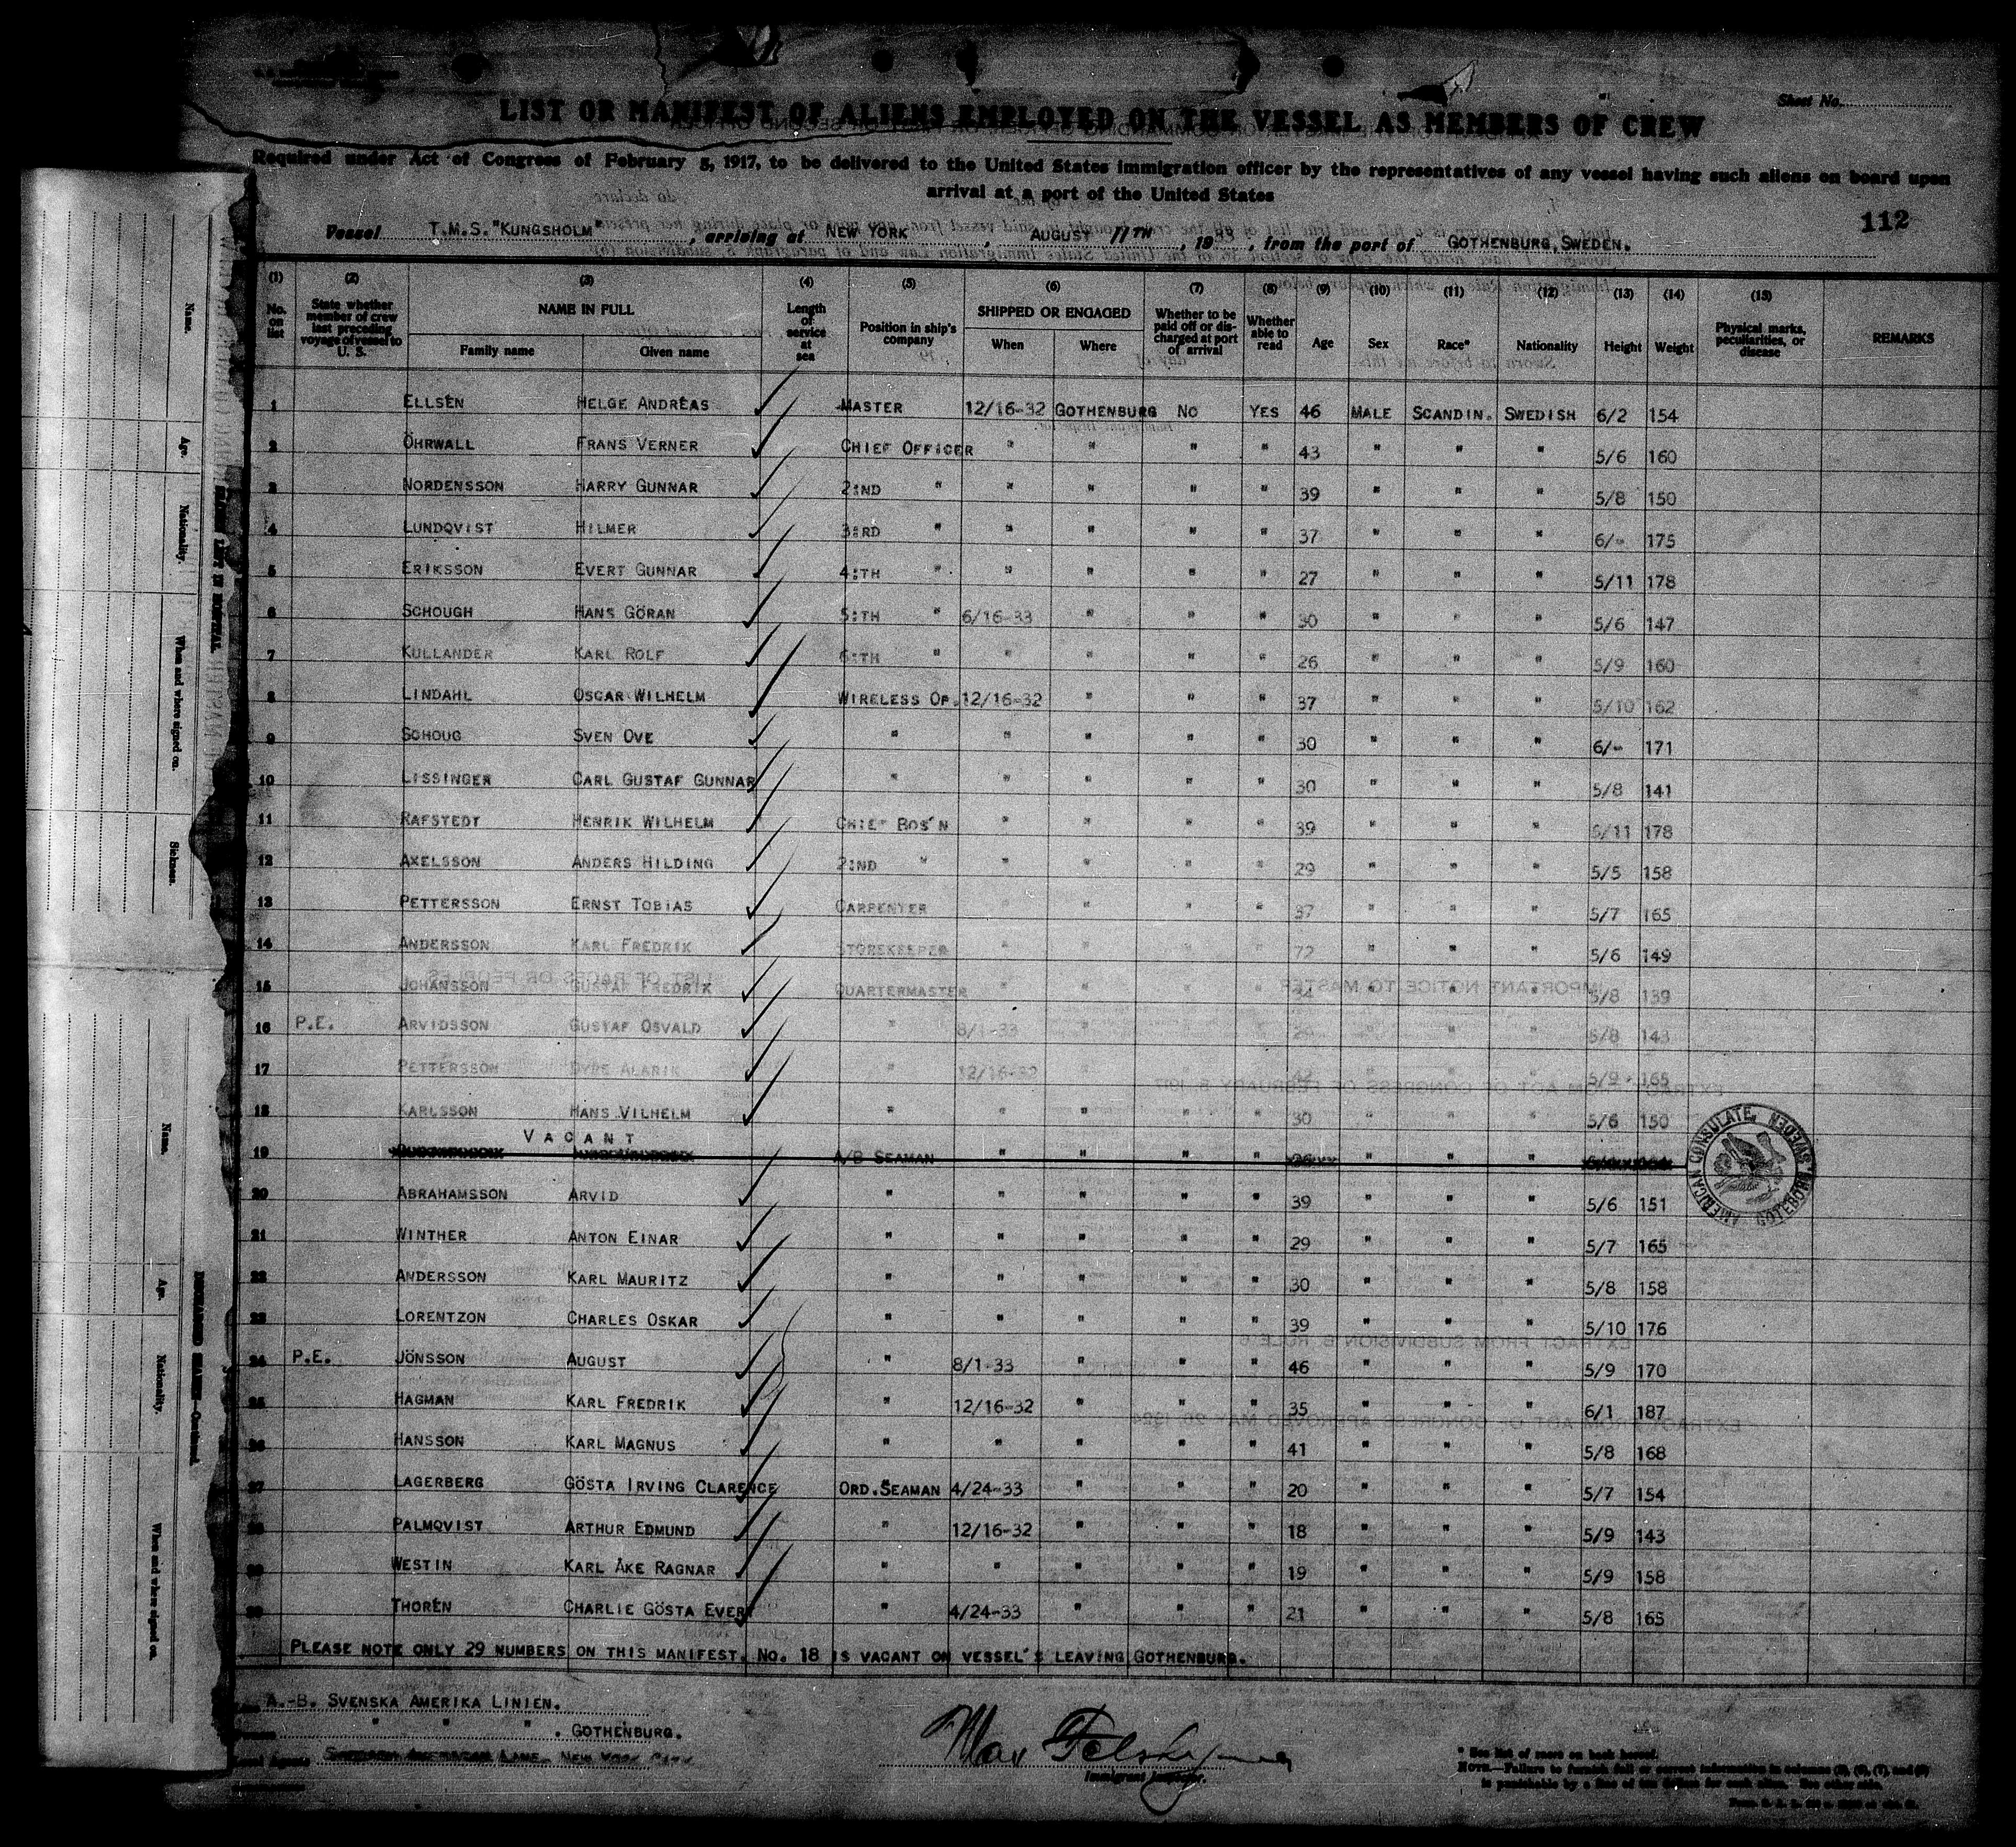 Sheet No.
LIST OR MANIFEST OF ALIENS EMPLOYED ON THE VESSEL AS MEMBERS OF CREW
Required under Act of Congress of February 5, 1917, to be delivered to the United States immigration officer by the representatives of any vessel having such aliens on board upon
arrival at a port of the United States
112
Vessel T.M.S. "KUNGSHOLM", arriving at NEW YORK, AUGUST 11TH, 1933, from the port of GOTHENBURG, SWEDEN.
(1) (2) (3) (4) (5) (6) (7) (8) (9) (10) (11) (12) (13) (14) (15)
No. on list | State whether member of crew last preceding voyage of vessel to U. S. | NAME IN FULL | Family name | Given name | Length of service at sea | Position in ship's company | SHIPPED OR ENGAGED | When | Where | Whether to be paid off or discharged at port of arrival | Whether able to read | Age | Sex | Race* | Nationality | Height | Weight | Physical marks, peculiarities, or disease | REMARKS
1 ELLSÉN HELGE ANDREAS MASTER 12/16-32 GOTHENBURG NO YES 46 MALE SCANDIN. SWEDISH 6/2 154
2 ÖHRWALL FRANS VERNER CHIEF OFFICER " " " " 43 " " " 5/6 160
3 NORDENSSON HARRY GUNNAR 2:ND " " " " " 39 " " " 5/8 150
4 LUNDQVIST HILMER 3:RD " " " " " 37 " " " 6/- 175
5 ERIKSSON EVERT GUNNAR 4:TH " " " " " 27 " " " 5/11 178
6 SCHOUGH HANS GÖRAN 5:TH " 6/16-33 " " " 30 " " " 5/6 147
7 KULLANDER KARL ROLF 6:TH " " " " " 26 " " " 5/9 160
8 LINDAHL OSCAR WILHELM WIRELESS OP. 12/16-32 " " " 37 " " " 5/10 162
9 SCHOUG SVEN OVE " " " " " 30 " " " 6/- 171
10 LISSINGER CARL GUSTAF GUNNAR " " " " " 30 " " " 5/8 141
11 RAFSTEDT HENRIK WILHELM CHIEF BOS'N " " " " 39 " " " 5/11 178
12 AXELSSON ANDERS HILDING 2:ND " " " " " 29 " " " 5/5 158
13 PETTERSSON ERNST TOBIAS CARPENTER " " " " 37 " " " 5/7 165
14 ANDERSSON KARL FREDRIK STOREKEEPER " " " " 72 " " " 5/6 149
15 JOHANSSON GUSTAF FREDRIK QUARTERMASTER " " " " 34 " " " 5/8 139
16 P.E. ARVIDSSON GUSTAF OSVALD " 8/1-33 " " " " " " 5/8 143
17 PETTERSSON ALARIK " 12/16-32 " " " 42 " " " 5/9 165
18 KARLSSON HANS VILHELM " " " " " 30 " " " 5/6 150
VACANT
19 A/B SEAMAN " " " " " " "
20 ABRAHAMSSON ARVID " " " " " 39 " " " 5/6 151
21 WINTHER ANTON EINAR " " " " " 29 " " " 5/7 165
22 ANDERSSON KARL MAURITZ " " " " " 30 " " " 5/8 158
23 LORENTZON CHARLES OSKAR " " " " " 39 " " " 5/10 176
24 P.E. JÖNSSON AUGUST " 8/1-33 " " " 46 " " " 5/9 170
25 HAGMAN KARL FREDRIK " 12/16-32 " " " 35 " " " 6/1 187
26 HANSSON KARL MAGNUS " " " " " 41 " " " 5/8 168
27 LAGERBERG GÖSTA IRVING CLARENCE ORD. SEAMAN 4/24-33 " " " 20 " " " 5/7 154
28 PALMQVIST ARTHUR EDMUND " 12/16-32 " " " 18 " " " 5/9 143
29 WESTIN KARL ÅKE RAGNAR " " " " " 19 " " " 5/9 158
30 THORÉN CHARLIE GÖSTA EVERT " 4/24-33 " " " 21 " " " 5/8 165
PLEASE NOTE ONLY 29 NUMBERS ON THIS MANIFEST. NO. 18 IS VACANT ON VESSEL'S LEAVING GOTHENBURG.
AMERICAN CONSULATE, GOTEBORG, SWEDEN
A.-B. SVENSKA AMERIKA LINIEN.
" " " . GOTHENBURG.
Agents SWEDISH AMERICAN LINE. NEW YORK CITY
Immigrant Inspector.
* See list of races on back hereof.
NOTE.—Failure to furnish full or correct information in columns (2), (6), (7), and (8)
is punishable by a fine of ten dollars for each alien. See other side.
Name.
Age.
Nationality.
When and where signed on.
Sickness.
Name.
Age.
Nationality.
When and where signed on.
DISCHARGED SEAMEN—Continued.